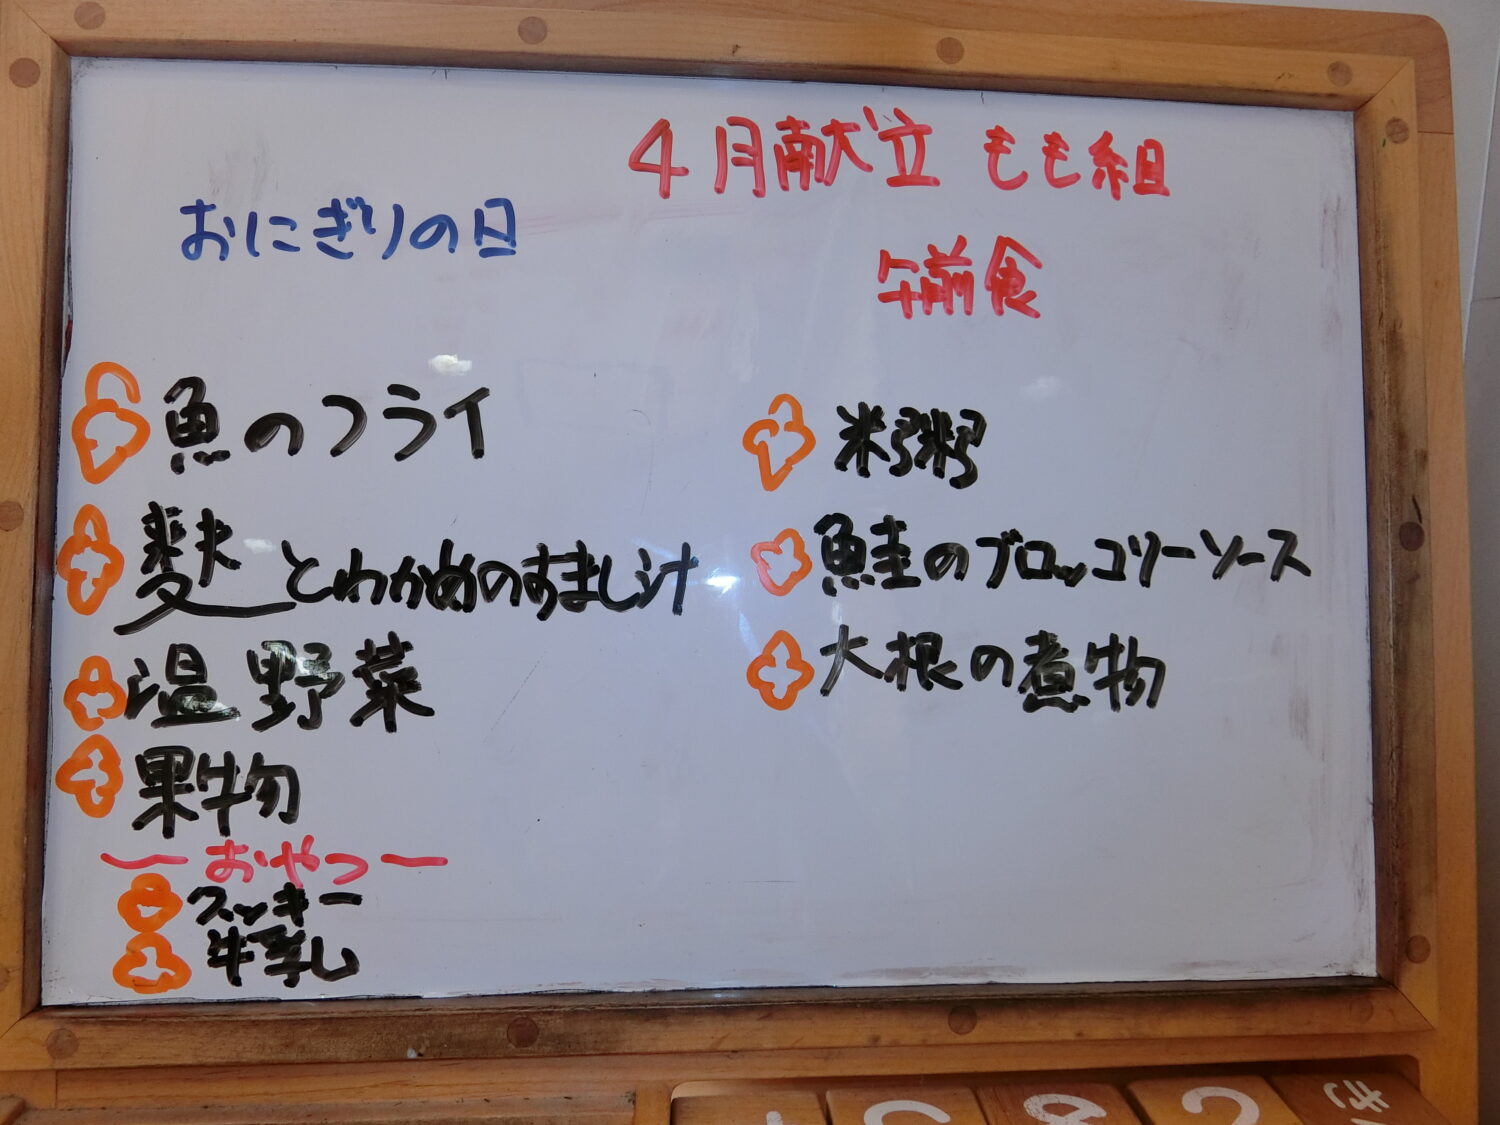 4月献立 もも組
おにぎりの日
午前食
魚のフライ
麩とわかめのすまし汁
温野菜
果物
おやつ
クッキー
牛乳
鮭のブロッコリーソース
大根の煮物